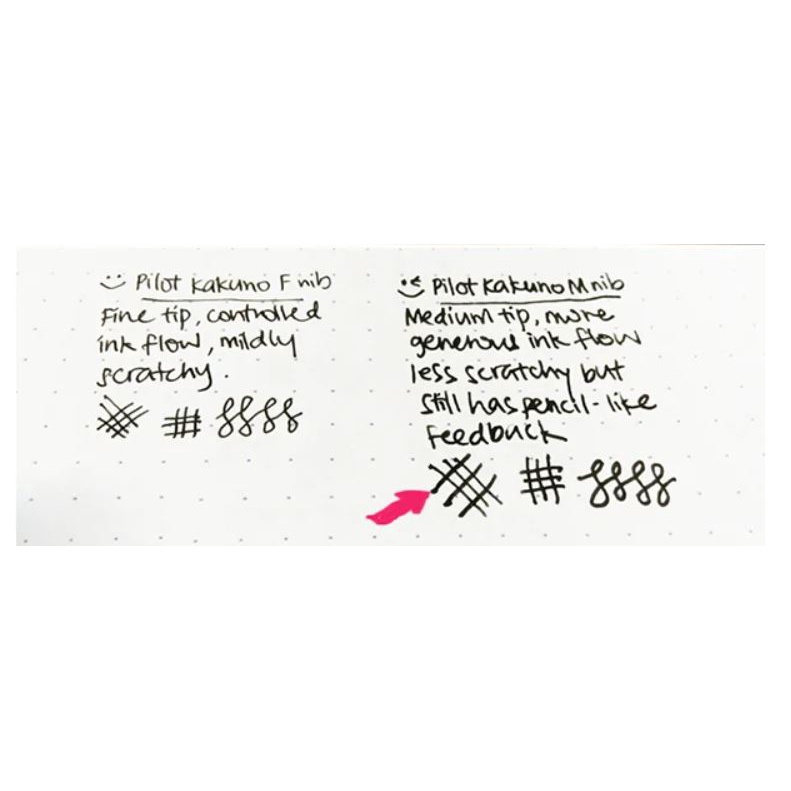 Pilot Kakuno F nib
Fine tip, controlled
ink flow, mildly
scratchy.
Pilot Kakuno M nib
Medium tip, more
generous ink flow
less scratchy but
still has pencil-like
feedback